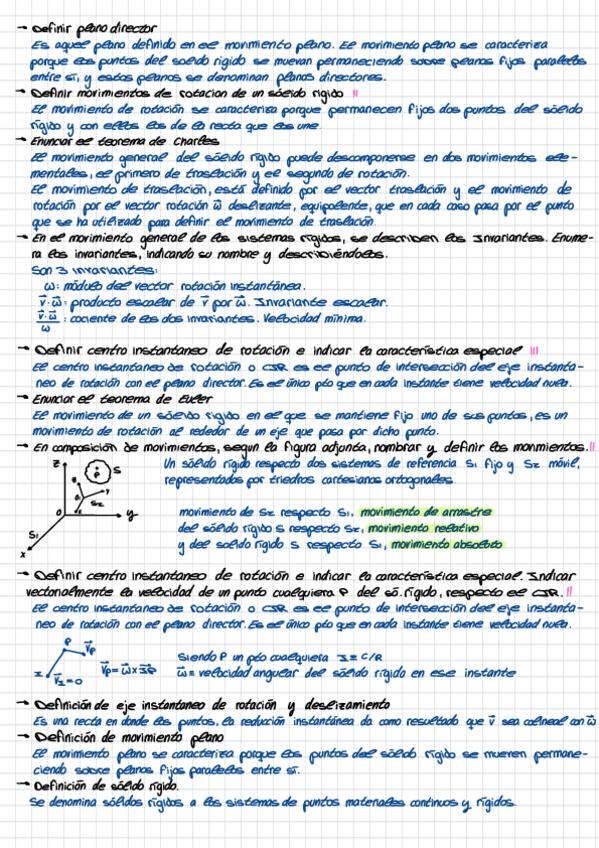 → Definir plano director
Es aquel plano definido en el movimiento plano. El movimiento plano se caracteriza
porque los puntos del solido rigido se muevan permaneciendo sobre planos fijos paralelos
entre sí, y estos planos se denominan planos directores.
→ Definir movimientos de rotacion de un sólido rígido II
El movimiento de rotación se caracteriza porque permanecen fijos dos puntos del sólido
rígido y con ellos los de la recta que los une.
→ Enunciar el teorema de Charles
El movimiento general del sólido rígido puede descomponerse en dos movimientos ele-
mentales, el primero de traslación y el segundo de rotación.
El movimiento de traslación, está definido por el vector traslación y el movimiento de
rotación por el vector rotación ω⃗ deslizante, equipolente, que en cada caso pasa por el punto
que se ha utilizado para definir el movimiento de traslación.
→ En el movimiento general de los sistemas rígidos, se describen los Invariantes. Enume-
ra los invariantes, indicando su nombre y describiéndolos.
Son 3 invariantes:
ω: módulo del vector rotación instantánea.
v⃗·ω⃗: producto escalar de v⃗ por ω⃗. Invariante escalar.
v⃗·ω⃗/ω : cociente de los dos invariantes. Velocidad mínima.
→ Definir centro instantaneo de rotación e indicar la característica especial III
El centro instantaneo de rotación o CIR es el punto de intersección del eje instantá-
neo de rotación con el plano director. Es el único pto que en cada instante tiene velocidad nula.
→ Enunciar el teorema de Euler
El movimiento de un sólido rígido en el que se mantiene fijo uno de sus puntos, es un
movimiento de rotación al rededor de un eje que pasa por dicho punto.
→ En composición de movimientos, segun la figura adjunta, nombrar y definir los movimientos. II
Un sólido rígido respecto dos sistemas de referencia S1 fijo y S2 móvil,
representados por triedros cartesianos ortogonales.
z P S
S2
O y
S1
x
movimiento de S2 respecto S1, movimiento de arrastre
del sólido rígido S respecto S2, movimiento relativo
y del solido rígido S respecto S1, movimiento absoluto
→ Definir centro instantaneo de rotación e indicar la característica especial. Indicar
vectorialmente la velocidad de un punto cualquiera P del só. rígido, respecto el CIR. II
El centro instantaneo de rotación o CIR es el punto de intersección del eje instantá-
neo de rotación con el plano director. Es el único pto que en cada instante tiene velocidad nula.
P v⃗P
I v⃗I=0
v⃗P = ω⃗ x IP
Siendo P un pto cualquiera I = C/R
ω⃗ = velocidad angular del sólido rígido en ese instante
→ Definición de eje instantaneo de rotación y deslizamiento
Es una recta en donde los puntos, la reducción instantánea da como resultado que v⃗ sea colineal con ω⃗
→ Definición de movimiento plano
El movimiento plano se caracteriza porque los puntos del sólido rígido se mueven permane-
ciendo sobre planos fijos paralelos entre sí.
→ Definición de sólido rígido.
Se denomina sólidos rígidos a los sistemas de puntos materiales continuos y rígidos.